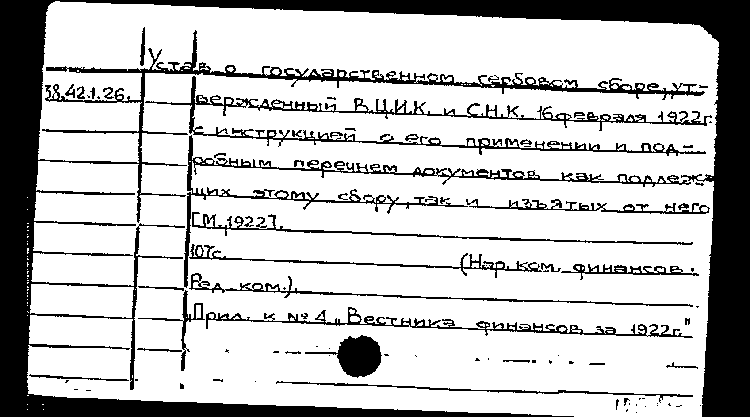 Устав о государственном гербовом сборе, ут-
38.42.1.26.
вержденный В.Ц.И.К. и С.Н.К. 16 февраля 1922г.
с инструкцией о его применении и под-
робным перечнем документов как подлежа-
щих этому сбору, так и изъятых от него
[М., 1922].
107с. (Нар. ком. финансов.
Ред. ком.).
"Прил. к №4 "Вестника финансов за 1922г."